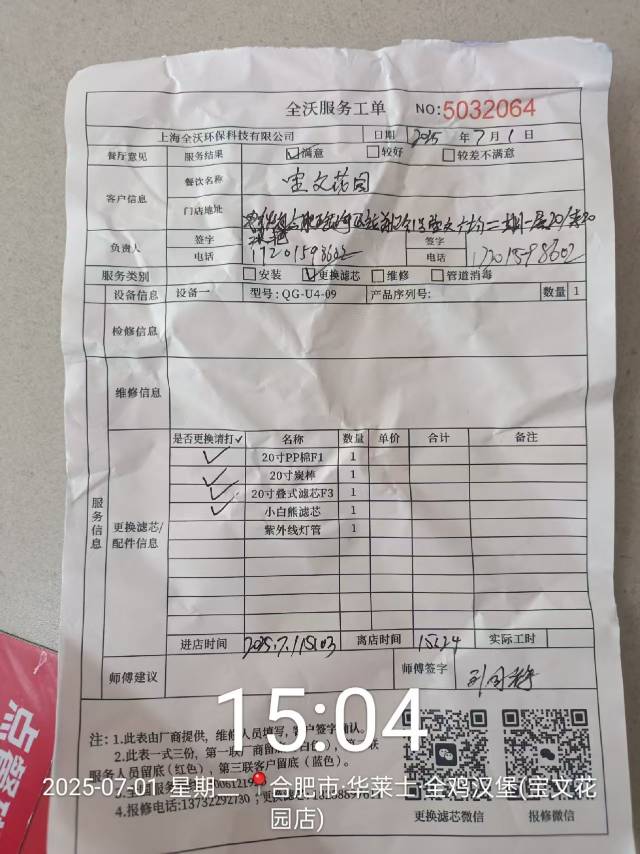 全沃服务工单 NO:5032064
上海全沃环保科技有限公司 日期 2025 年 7 月 1 日
餐厅意见 服务结果 ☑满意 □较好 □较差不满意
客户信息 餐饮名称 宝文花园
门店地址
负责人 签字 签字
电话 17201598602 电话 17201598602
服务类别 □安装 ☑更换滤芯 □维修 □管道消毒
设备信息 设备一 型号:QG-U4-09 产品序列号: 数量 1
检修信息
维修信息
服务信息
更换滤芯/配件信息
是否更换请打✓ 名称 数量 单价 合计 备注
✓ 20寸PP棉F1 1
✓ 20寸炭棒 1
✓ 20寸叠式滤芯F3 1
✓ 小白熊滤芯 1
紫外线灯管 1
进店时间 2025.7.1 15:03 离店时间 15:24 实际工时
师傅建议 师傅签字
15:04
注: 1.此表由厂商提供, 维修人员填写, 客户签字确认。
2.此表一式三份, 第一联厂商留底
服务人员留底(红色), 第三联客户留底(蓝色)。
2025-07-01 星期二 合肥市·华莱士·全鸡汉堡(宝文花
园店)
4.报修电话:13732292730
更换滤芯微信 报修微信
点餐